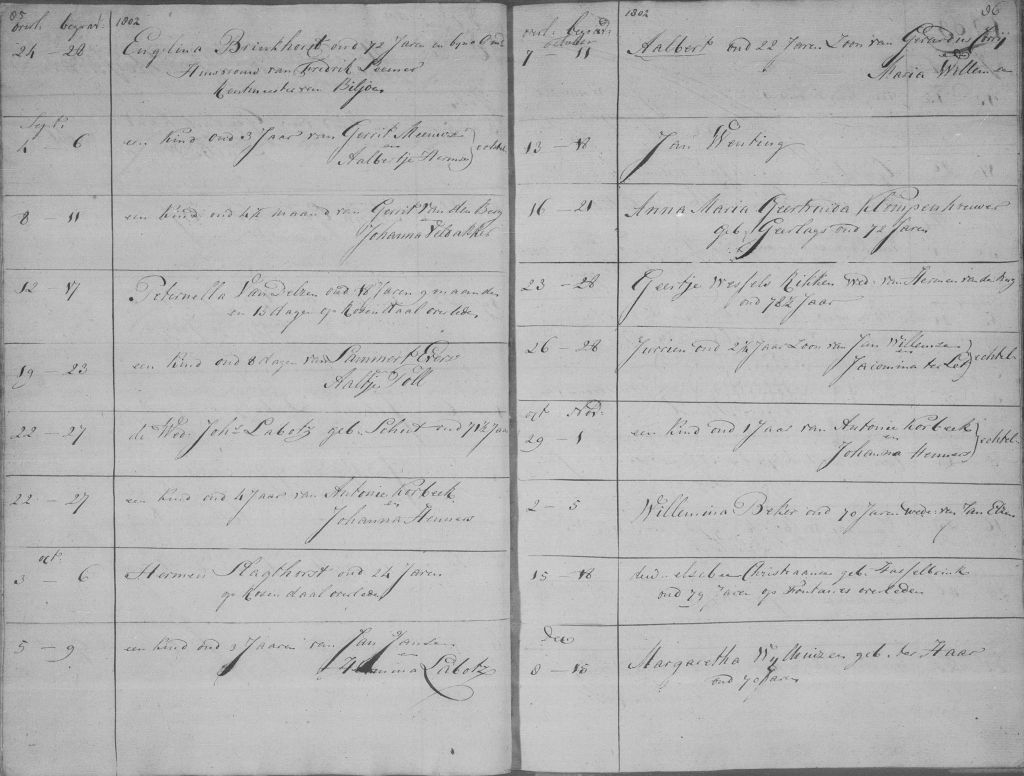 85
overl: begrav: 1802
24 - 28 Engelina Brinkhorst oud 72 Jaren en
Huisvrouw van Fredrik Leemer
Rentmeester van Biljoen
Sept:
4 - 6 een kind oud 3 Jaar van Gerrit Meeuwsen
en
Aalbertje Hermsen } echtel
8 - 11 een kind oud 4½ maand van Gerrit van den Berg
Johanna Veldakker
12 - 17 Peternella Van Delzen oud 18 Jaren 9 maanden
en 15 dagen op Rosendaal overleden
19 - 23 een kind oud 8 dagen van Lammert Evers
Aaltje Toll
22 - 27 de Wed: Johs Labotz geb: Schut oud 71½ Jaar
22 - 27 een kind oud 4 Jaar van Antonie Korbeek
en
Johanna Hemmes
oct:
3 - 6 Hermen Slagthorst oud 24 Jaren
op Rosendaal overleden
5 - 9 een kind oud 3 Jaaren van Jan Jansen
en
Labotz
86
overl: begrav: 1802
october
7 - 11 Aalbert oud 22 Jaren Zoon van Gerardus
en
Maria Willemsen
13 - 18 Jan Wenting
16 - 21 Anna Maria Geertruida Klompenhouwer
geb: Gerlags oud 72 Jaren
23 - 28 Geertje Wessels Rikken Wed: van Hermen van den Brug
oud 78½ Jaar
26 - 28 Jurrien oud 2½ Jaar Zoon van Jan Willemsen
en
Jacomina ter } echtel.
oct Nov:
29 - 1 een kind oud 1 Jaar van Antonie Korbeek
en
Johanna Hemmes } echtel.
2 - 5 Willemina Beker oud 70 Jaren wede: van Jan
15 - 18 Christiaansen geb: Hasselbrink
oud 79 Jaren op Fontaines overleden
Dec
8 - 15 Margaretha Wylhuizen geb: ter Haar
oud 70 Jaren